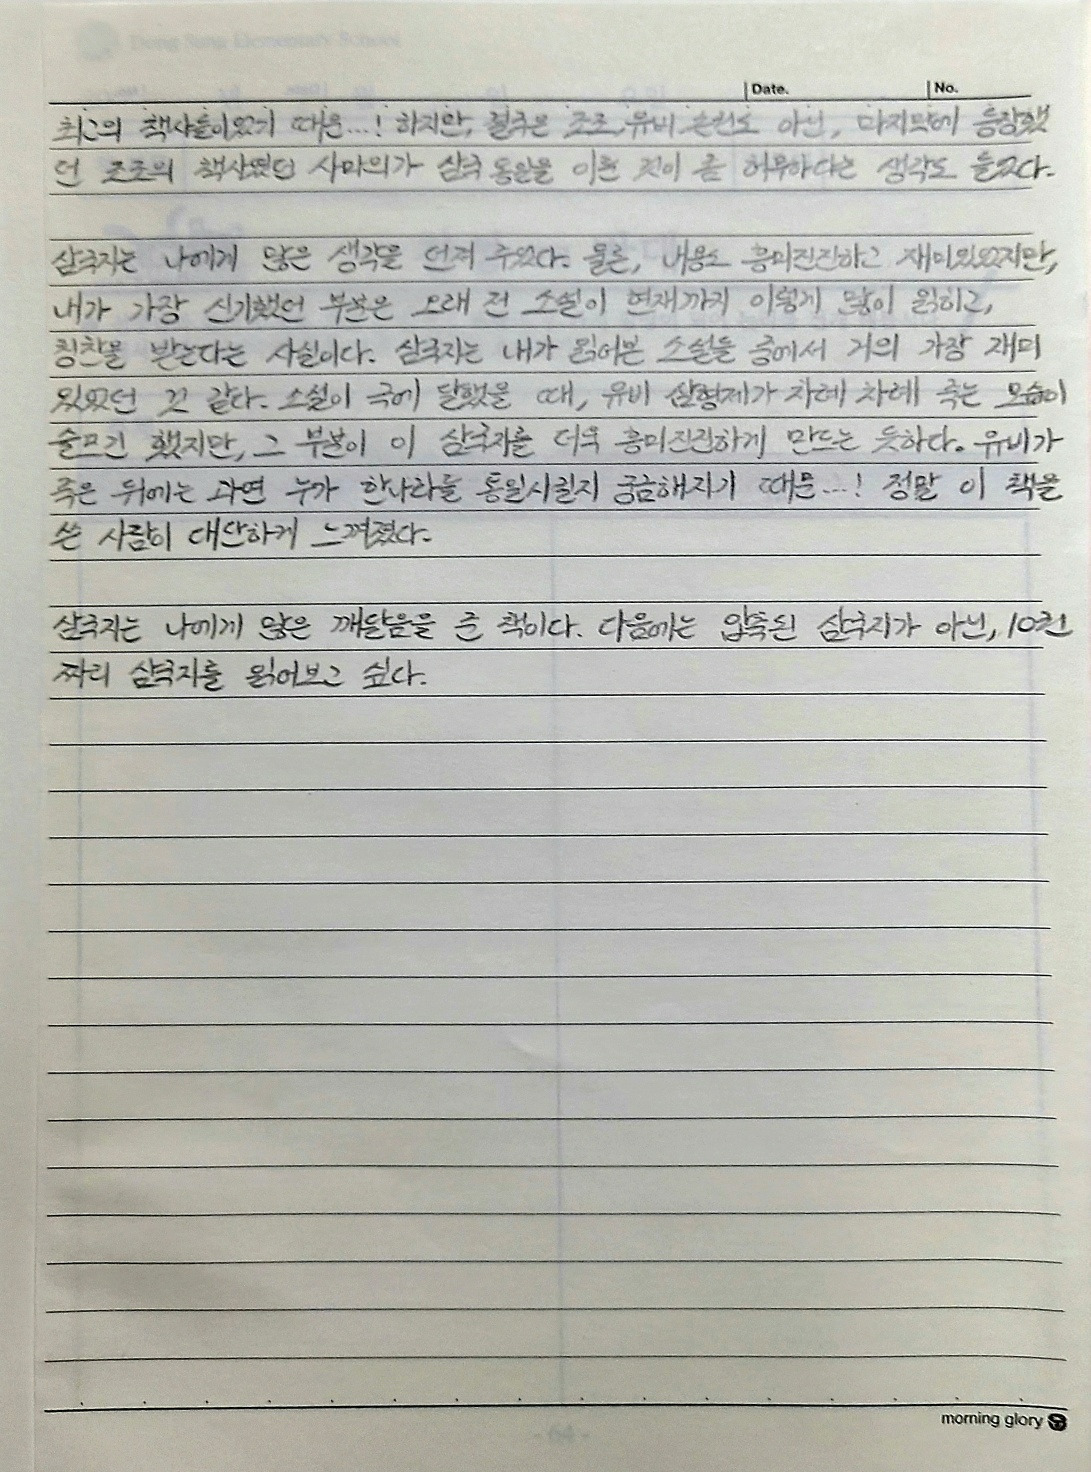 Dong Sung Elementary School
Date. No.
최고의 책사들이었기 때문...! 하지만, 결국은 조조, 유비, 손권도 아닌, 마지막에 등장했
던 조조의 책사였던 사마의가 삼국 통일을 이룬 것이 좀 허무하다는 생각도 들었다.
삼국지는 나에게 많은 생각을 던져 주었다. 물론, 내용도 흥미진진하고 재미있었지만,
내가 가장 신기했던 부분은 오래 전 소설이 현재까지 이렇게 많이 읽히고,
칭찬을 받는다는 사실이다. 삼국지는 내가 읽어본 소설들 중에서 거의 가장 재미
있었던 것 같다. 소설이 극에 달했을 때, 유비 삼형제가 차례 차례 죽는 모습이
슬프긴 했지만, 그 부분이 이 삼국지를 더욱 흥미진진하게 만드는 듯하다. 유비가
죽은 뒤에는 과연 누가 한나라를 통일시킬지 궁금해지기 때문...! 정말 이 책을
쓴 사람이 대단하게 느껴졌다.
삼국지는 나에게 많은 깨달음을 준 책이다. 다음에는 압축된 삼국지가 아닌, 10권
짜리 삼국지를 읽어보고 싶다.
morning glory
- 64 -